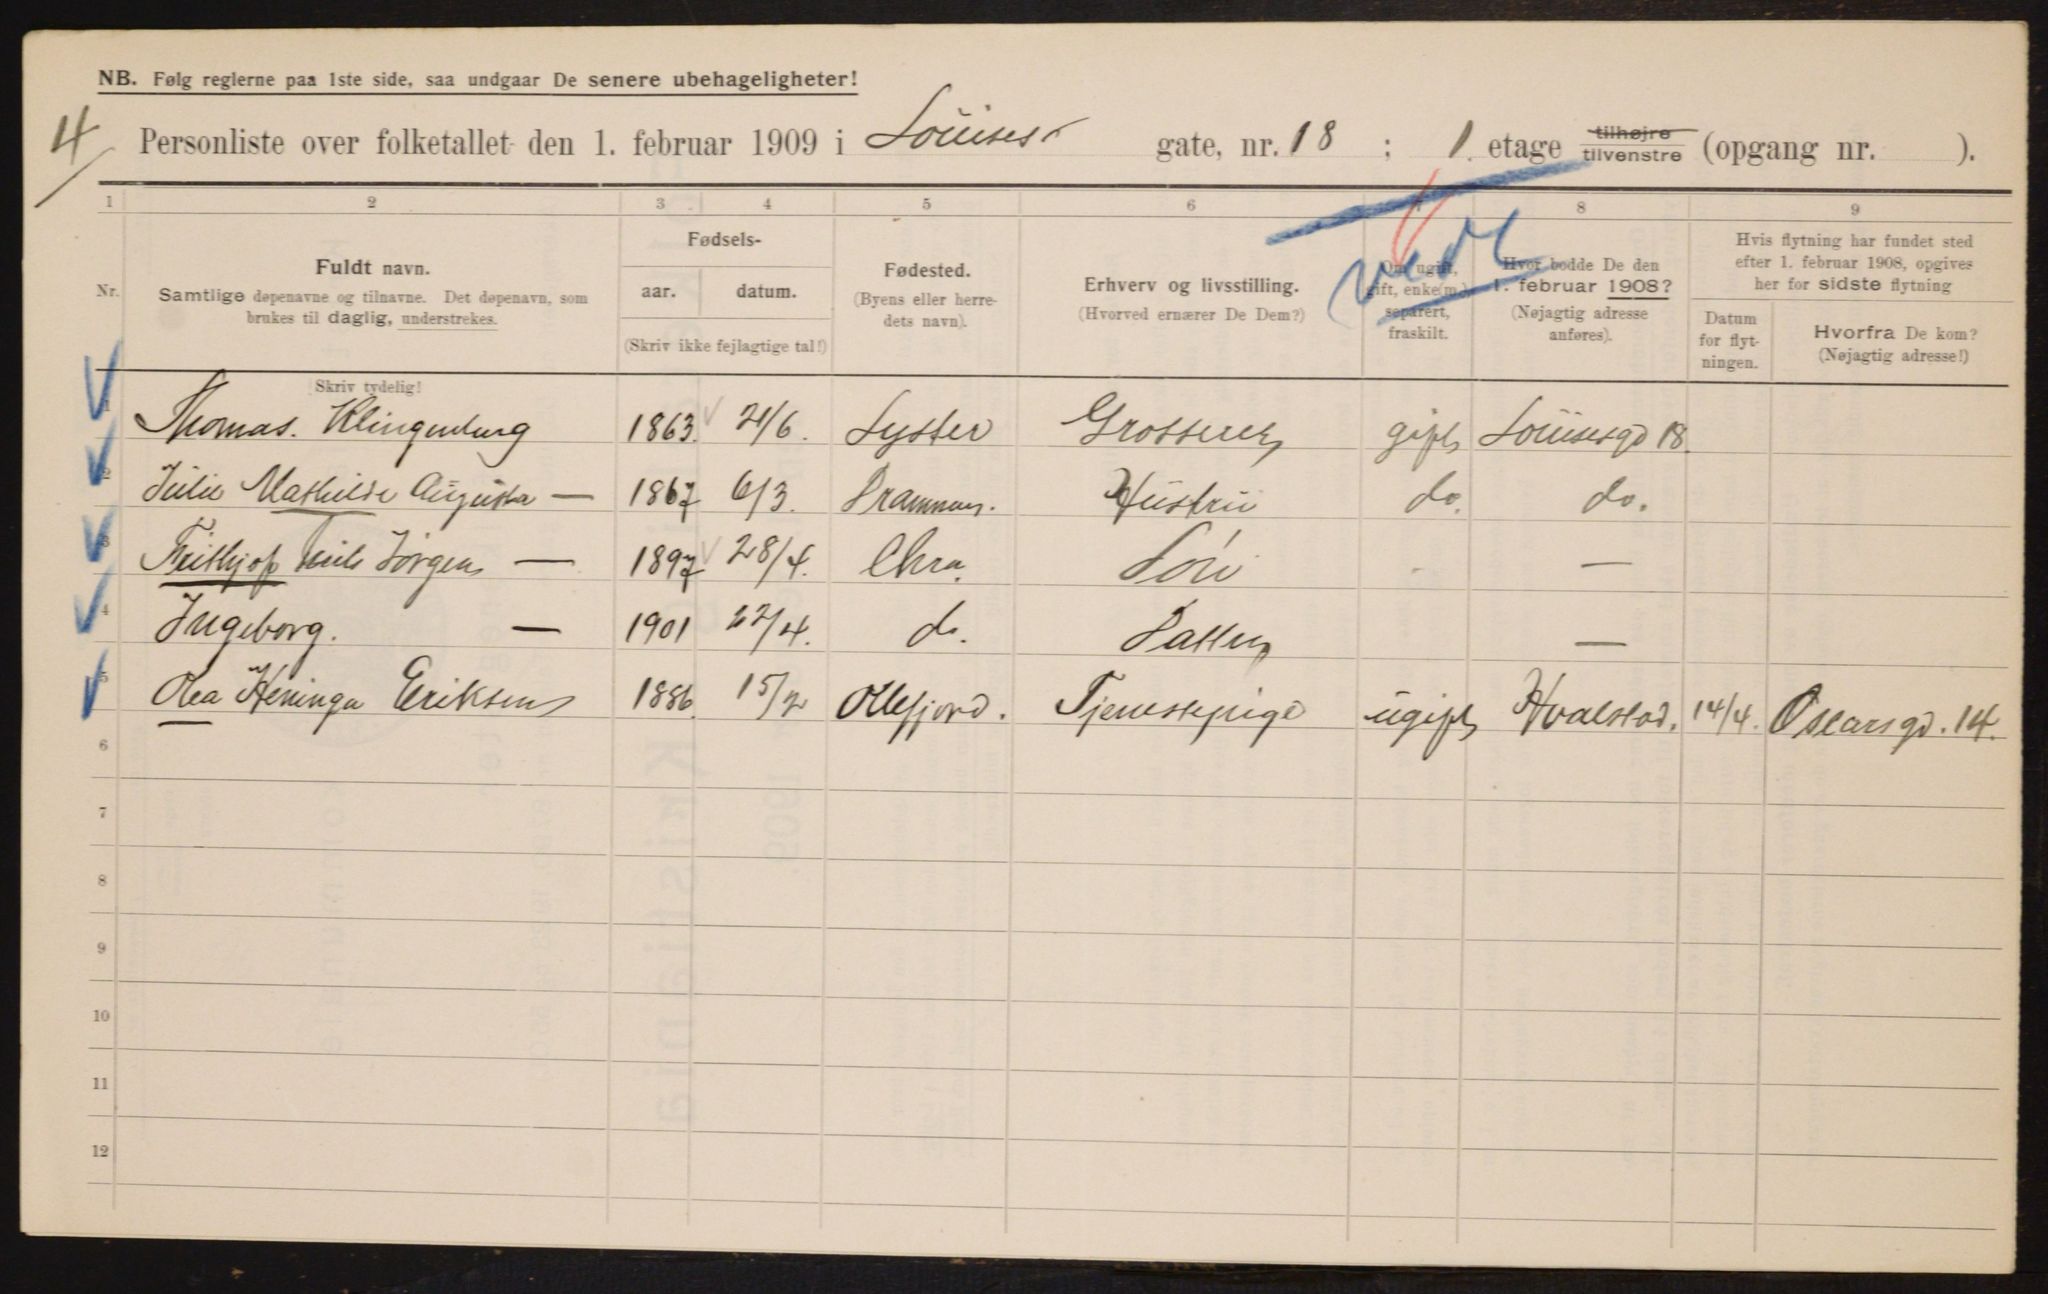 NB. Følg reglerne paa 1ste side, saa undgaar De senere ubehageligheter!
4
Personliste over folketallet den 1. februar 1909 i Louises gate, nr. 18 ; 1. etage tilhøjre tilvenstre (opgang nr. ).
1 2 3 4 5 6 7 8 9
Nr.
Fuldt navn.
Samtlige døpenavne og tilnavne. Det døpenavn, som
brukes til daglig, understrekes.
Skriv tydelig!
Fødsels-
aar. datum.
(Skriv ikke fejlagtige tal!)
Fødested.
(Byens eller herre-
dets navn).
Erhverv og livsstilling.
(Hvorved ernærer De Dem?)
Om ugift,
gift, enke(m.),
separert,
fraskilt.
Hvor bodde De den
1. februar 1908?
(Nøjagtig adresse
anføres).
Hvis flytning har fundet sted
efter 1. februar 1908, opgives
her for sidste flytning
Datum
for flyt-
ningen.
Hvorfra De kom?
(Nøjagtig adresse!)
1 Thomas. Klingenberg 1863. 21/6. Lyster Grosserer gift Louisesgd 18.
2 Julie Mathilde Augusta — 1867 6/3. Drammen. Hustru do. do.
3 Frithjof Nils Jørgen — 1897 28/4. Chra. Søn - —
4 Ingeborg. — 1901 22/4. do. Datter —
5 Olea Heninga Eriksen 1886. 15/2 Ollefjord. Tjenestepige ugift Hvalstad. 14/4. Oscarsgd. 14.
6
7
8
9
10
11
12